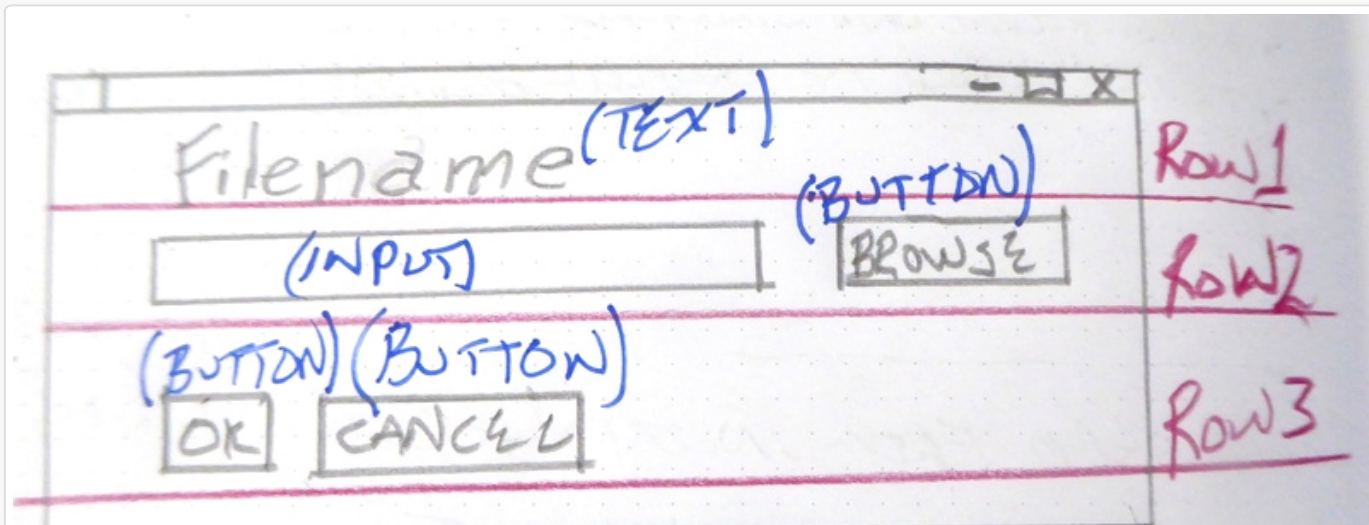 - □ X
Filename (TEXT) Row1
(BUTTON)
(INPUT) BROWSE Row2
(BUTTON) (BUTTON)
OK CANCEL Row3